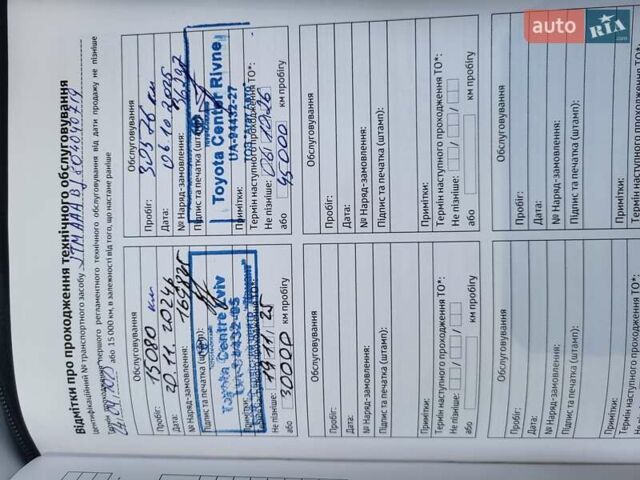 auto RIA
.com
Відмітки про проходження технічного обслуговування
Ідентифікаційний № транспортного засобу JTMAAABJ804040719
Термін проходження першого регламентного технічного обслуговування від дати продажу не пізніше
або 15 000 км, в залежності від того, що настане раніше
Обслуговування
Пробіг: 15080 км
Дата: 20.11.2024
№ Наряд-замовлення: 169825
Підпис та печатка (штамп):
Toyota Centre Lviv
Примітки:
Термін наступного проходження ТО*:
Не пізніше: 19/11/25
або 30000 км пробігу
Обслуговування
Пробіг: 30576 км
Дата: 06.10.2025
№ Наряд-замовлення:
Підпис та печатка (штамп):
Toyota Center Rivne
UA-94432-27
Примітки:
Термін наступного проходження ТО*:
Не пізніше:
або 45000 км пробігу
Обслуговування
Пробіг:
Дата:
№ Наряд-замовлення:
Підпис та печатка (штамп):
Примітки:
Термін наступного проходження ТО*:
Не пізніше: / /
або км пробігу
Обслуговування
Пробіг:
Дата:
№ Наряд-замовлення:
Підпис та печатка (штамп):
Примітки:
Термін наступного проходження ТО*:
Не пізніше: / /
або км пробігу
Обслуговування
Пробіг:
Дата:
№ Наряд-замовлення:
Підпис та печатка (штамп):
Примітки:
Термін наступного
Не пізніше:
або
Обслуговування
Пробіг:
Дата:
№ Наряд-замовлення:
Підпис та печатка (штамп):
Примітки:
Термін наступного
Не пізніше:
або